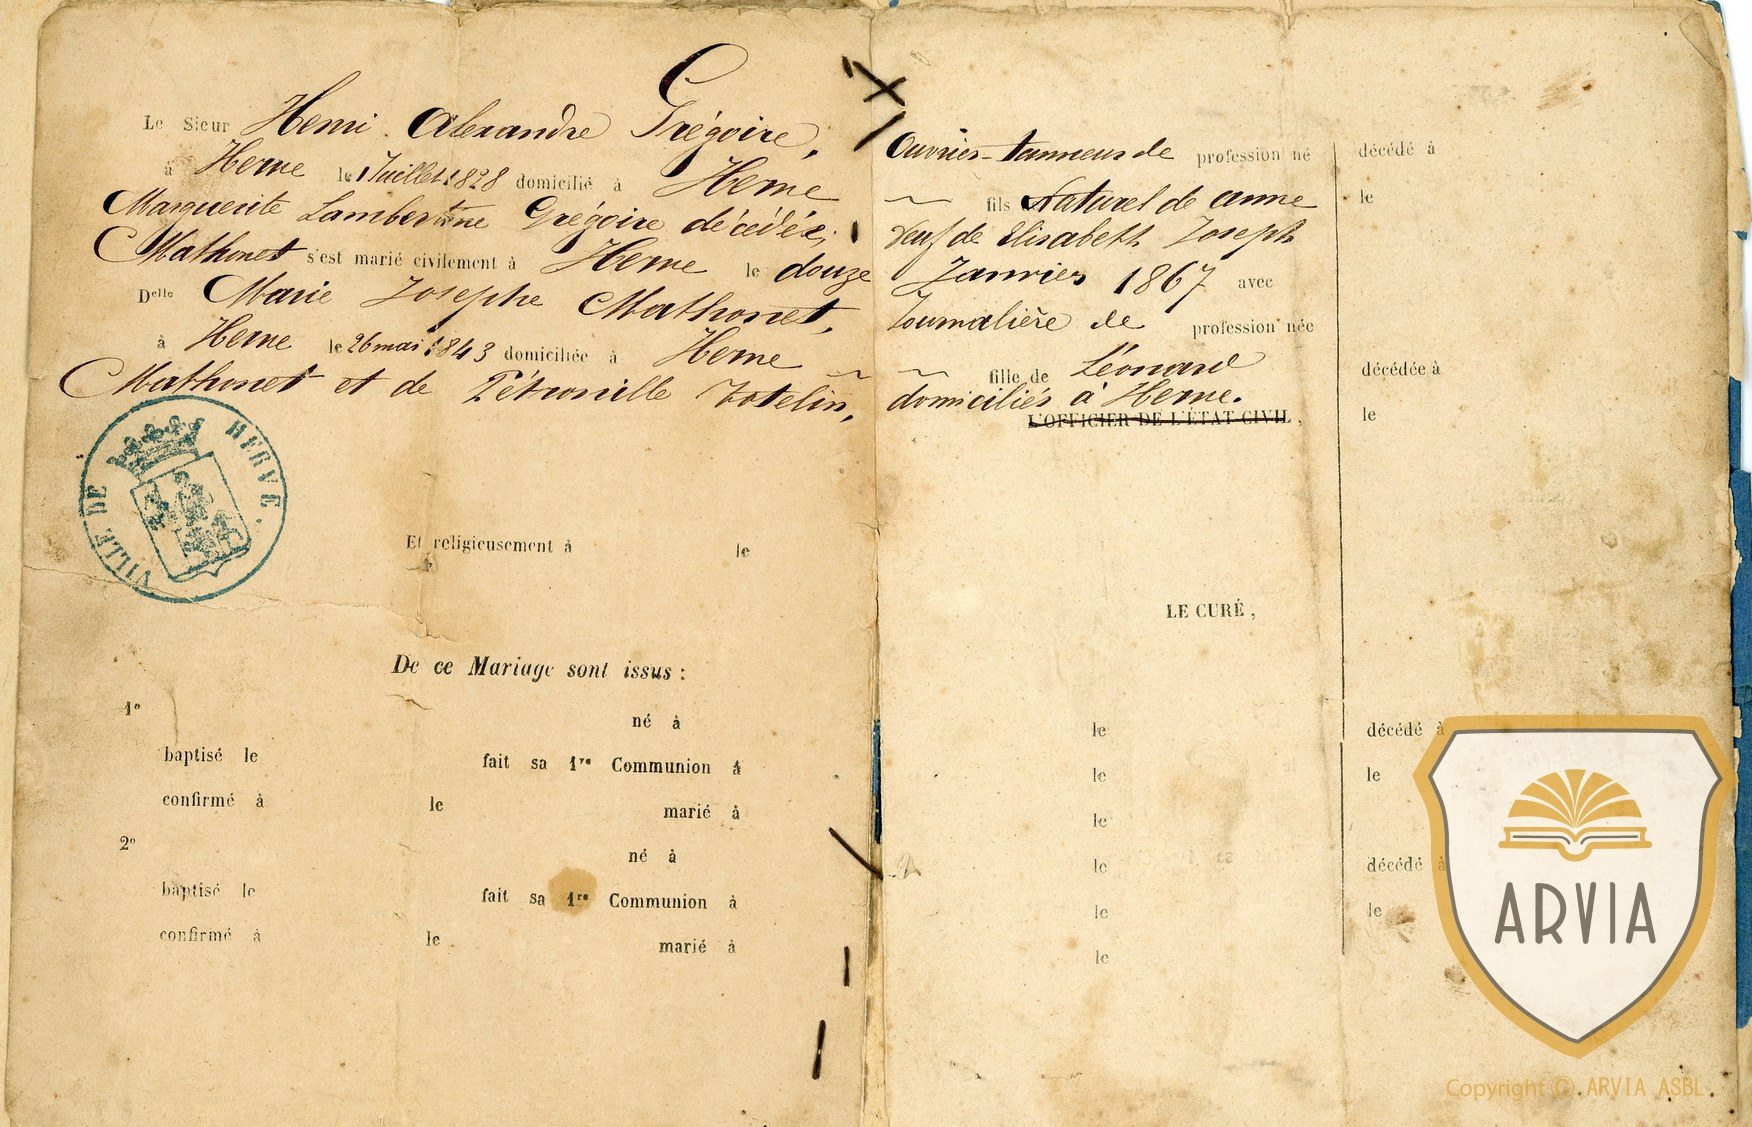 Le Sieur Henri Alexandre Grégoire, Ouvrier-tanneur de profession né
à Herve le 1 Juillet 1828 domicilié à Herve fils Naturel de anne
Marguerite Lambertine Grégoire décédée, veuf de Elisabeth Joseph
Mathonet s'est marié civilement à Herve le douze Janvier 1867 avec
Delle Marie Josephe Mathonet, Journalière de profession née
à Herve le 26 mai 1843 domiciliée à Herve fille de Léonard
Mathonet et de Pétronille domiciliés à Herve.
L'OFFICIER DE L'ÉTAT CIVIL,
décédé à
le
décédée à
le
VILLE DE HERVE.
Et religieusement à le
LE CURÉ,
De ce Mariage sont issus :
1° né à le décédé à
baptisé le fait sa 1re Communion à le le
confirmé à le marié à le
2° né à le décédé à
baptisé le fait sa 1re Communion à le le
confirmé à le marié à le
ARVIA
Copyright © ARVIA ASBL